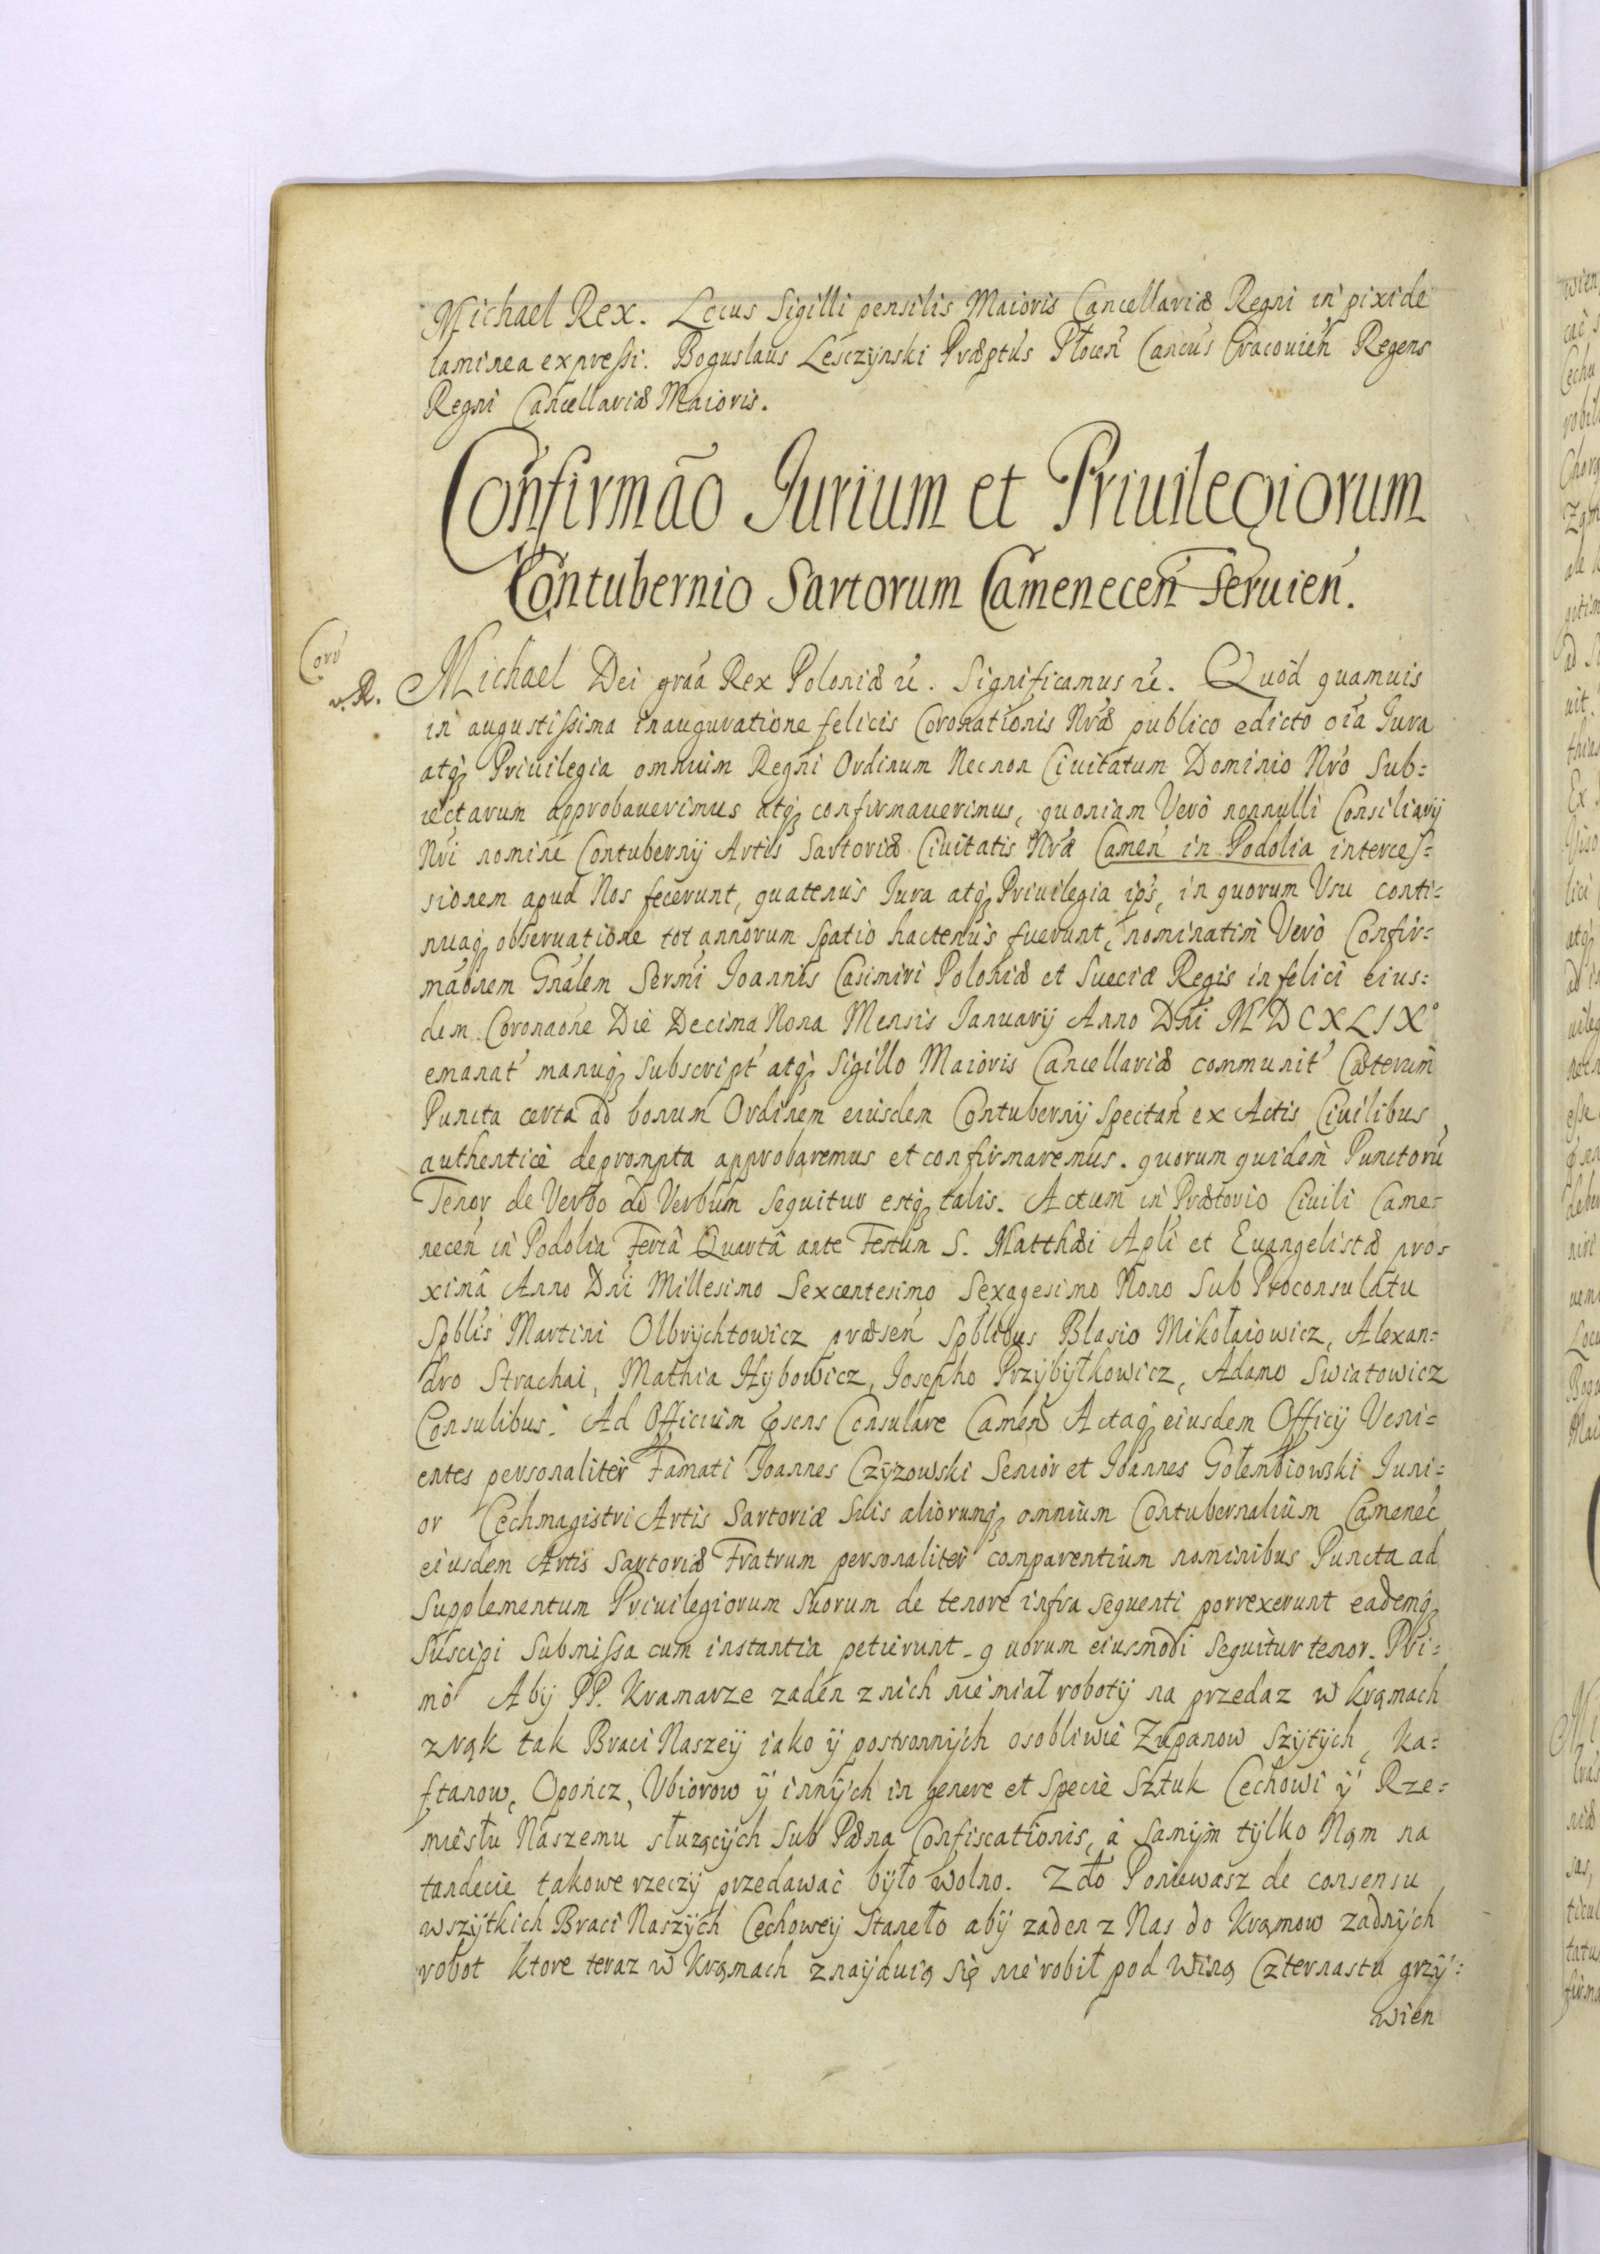 Michael Rex. Locus Sigilli pensilis Maioris Cancellariæ Regni in pixide
laminea expressi. Boguslaus Lesczynski Præptus Płocen̄ Cancus Cracovien̄ Regens
Regni Cancellariæ Maioris.
Confirmāo Jurium et Priuilegiorum
Contubernio Sartorum Camenecen̄ Seruien̄.
Michael Dei graā Rex Poloniæ &c. Significamus &c. Quòd quamuis
in augustissima inauguratione felicis Coronationis Nrǣ publico edicto oīa Jura
atq; Priuilegia omnium Regni Ordinum Necnon Ciuitatum Dominio Nrō Sub=
iectarum approbauerimus atq; confirmauerimus, quoniam Verò nonnulli Consiliarij
Nrī nomine Contubernij Artis Sartoriæ Ciuitatis Nrǣ Camen̄ in Podolia interces=
sionem apud Nos fecerunt, quatenus Jura atq; Priuilegia ips̄, in quorum Usu conti=
nuaq; obseruatione tot annorum spatio hactenus fuerunt, nominatim Verò Confir=
māonem Gn̄alem Sermī Joannis Casimiri Poloniæ et Sueciæ Regis in felici eius=
dem Coronaōne Die Decima Nona Mensis Januarij Anno Dn̄i MDCXLIXº
emanat̄ manuq; subscript̄ atq; Sigillo Maioris Cancellariæ communit̄ Cæterum
Puncta certa ad bonum Ordinem eiusdem Contubernij Spectan̄ ex Actis Ciuilibus
authenticè deprompta approbaremus et confirmaremus. quorum quidem Punctorū
Tenor de Verbo ad Verbum Sequitur estq; talis. Actum in Prætorio Ciuili Came=
necen̄ in Podolia Feriâ Quartâ ante Festum S. Matthæi Apl̄i et Euangelistæ pro=
ximâ Anno Dn̄i Millesimo Sexcentesimo Sexagesimo Nono Sub Proconsulatu
Spbl̄is Martini Olbrychtowicz præsen̄ Spbl̄ibus Blasio Mikołaiowicz, Alexan=
dro Strachai, Mathia Hybowicz, Josepho Przybyłkowicz, Adamo Swiatowicz
Consulibus. Ad Officium p̄sens Consulare Camen̄ Actaq; eiusdem Officij Veni=
entes personaliter Famati Joannes Czyzowski Senior et Joannes Gołembiowski Juni=
or Cechmagistri Artis Sartoriæ Suis aliorumq; omnium Contubernalium Camenec̄
eiusdem Artis Sartoriæ Fratrum personaliter comparentium nominibus Puncta ad
Supplementum Priuilegiorum Suorum de tenore infra sequenti porrexerunt eademq;
Suscipi Submissa cum instantia petierunt. quorum eiusmodi sequitur tenor. Pri=
mò Aby PP. Kramarze zaden z nich niemiał roboty na przedaz w kramach
z rąk tak Braci Naszey iako y postronnych osobliwie Zupanow Szytych, Ka=
ftanow, Opończ, Ubiorow y innych in genere et specie Sztuk Cechowi y Rze=
miesłu Naszemu służących Sub Pæna Confiscationis, à samym tylko Nąm na
tandecie takowe rzeczy przedawać było wolno. 2dò Poniewasz de consensu
wszytkich Braci Naszych Cechowey Staneło aby zaden z Nas do Krąmow zadnych
robot ktore teraz w Krąmach znayduią się nie robił pod winą Czternastu grzy=
wien